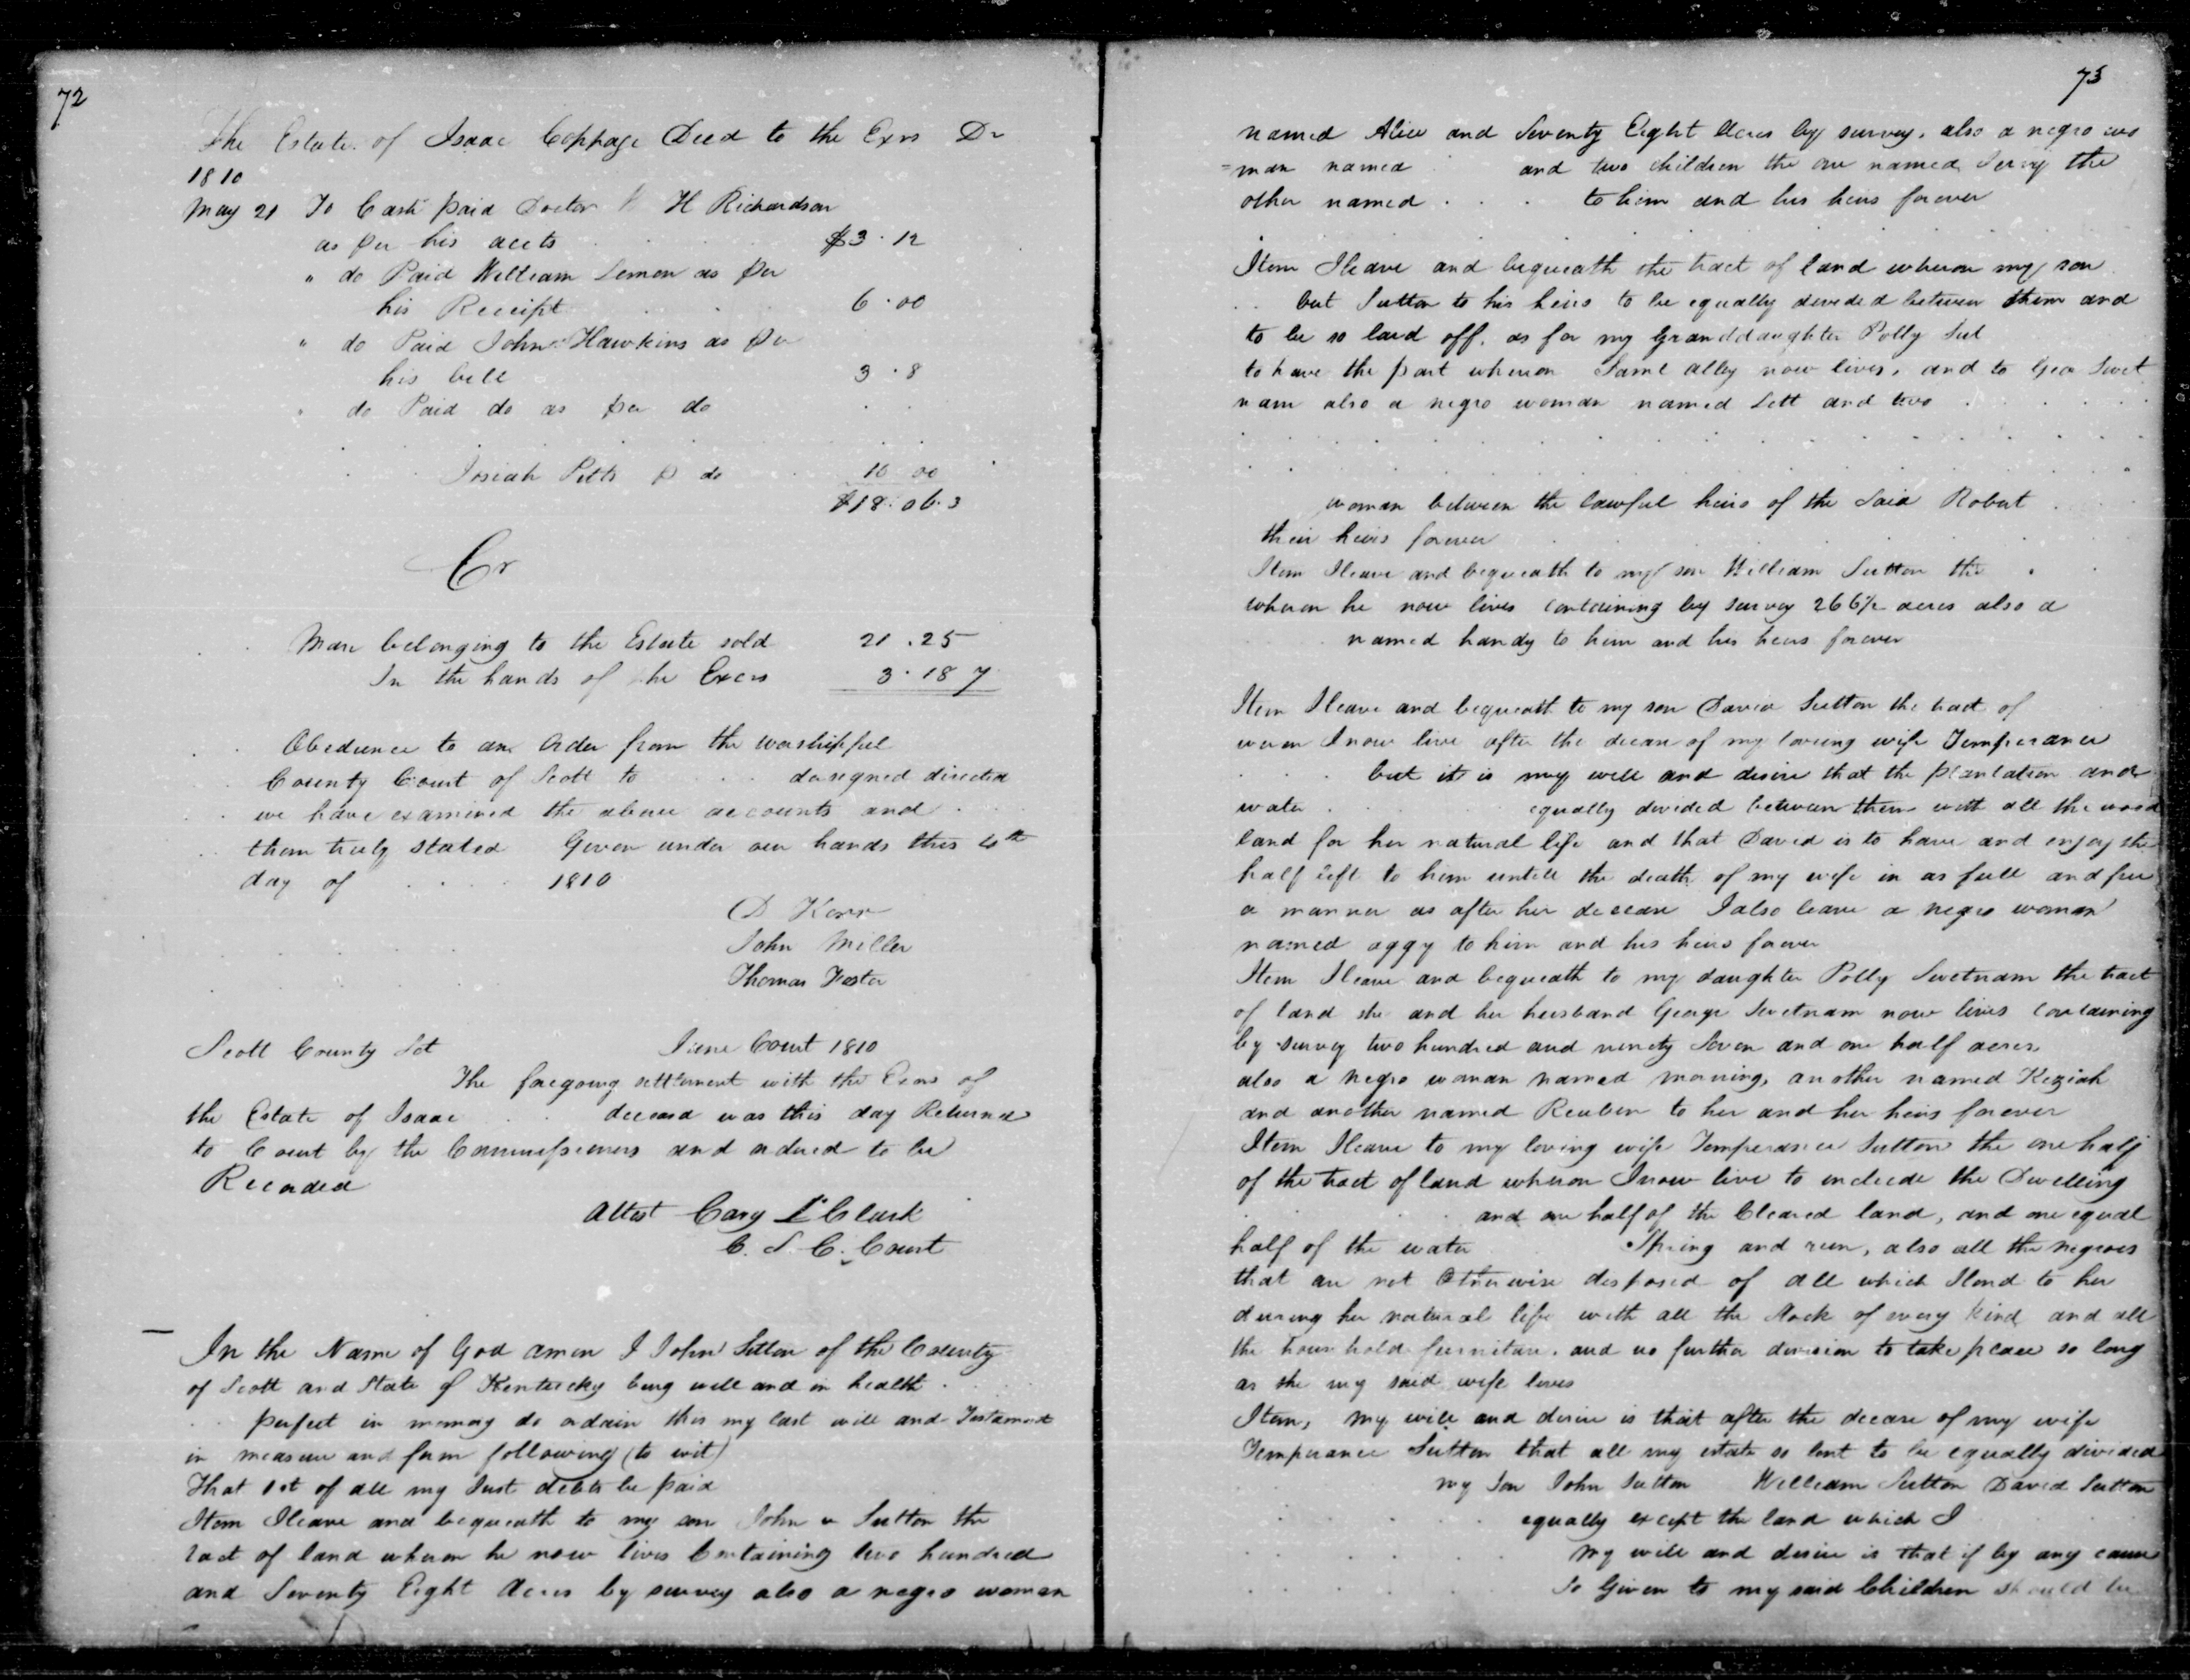 72
The Estate of Isaac Coppage Decd to the Exrs Dr
1810
May 21 To Cash paid Doctor H Richardson
as per his accts $3.12
" do Paid William Lemon as per
his Receipt 6.00
" do Paid John Hawkins as per
his bill 3.8
" do Paid do as per do
Josiah Pitts p do 10 00
$18.06.3
Cr
Mare belonging to the Estate sold 21.25
In the hands of the Exers 3.18 7
Obedience to an Order from the worshipful
County Court of Scott to designed directed
we have examined the above accounts and
them truly stated Given under our hands this
day of 1810
D Kerr
John Miller
Thomas Foster
Scott County Sct June Court 1810
The foregoing settlement with the Exors of
the Estate of Isaac deceasd was this day Returned
to Court by the Commissioners and ordered to be
Recorded
Attest Cary L Clark
C. S. C. Court
In the Name of God amen I John Sutton of the County
of Scott and State of Kentucky being well and in health
perfect in memory do ordain this my last will and Testament
in measure and form following (to wit)
That 1st of all my Just debts be paid
Item I leave and bequeath to my son John Sutton the
tract of land wheron he now lives Containing two hundred
and Seventy Eight Acres by survey also a negro woman
73
named Alice and Seventy Eight Acres by survey, also a negro wo
=man named and two children the one named the
other named to him and his heirs forever
Item I leave and bequeath the tract of land wheron my son
but Sutton to his heirs to be equally devided between them and
to be so laid off, as for my Granddaughter Polly Sut
to have the part wheron Saml alley now lives, and to Geo Swet
nam also a negro woman named Lett and two
woman between the lawful heirs of the Said Robert
their heirs forever
Item I leave and bequeath to my son William Sutton the
wheron he now lives containing by survey 266½ acres also a
named handy to him and his heirs forever
Item I leave and bequeath to my son David Sutton the tract of
weron I now live after the decease of my loveing wife Temperance
but it is my will and desire that the plantation and
water equally divided between them with all the wood
land for her natural life and that David is to have and enjoy the
half left to him untill the death of my wife in as full and free
a manner as after her decease I also leave a negro woman
named aggy to him and his heirs forever
Item I leave and bequeath to my daughter Polly Swetnam the tract
of land she and her husband George Swetnam now lives containing
by survey two hundred and ninety Seven and one half acres
also a negro woman named morning, another named Keziah
and another named Reuben to her and her heirs forever
Item I leave to my loving wife Temperance Sutton the one half
of the tract of land wheron I now live to include the Dwelling
and one half of the Cleared land, and one equal
half of the water Spring and run, also all the negroes
that are not Otherwise desposed of all which I lend to her
during her natural life with all the Stock of every kind and all
the household furniture, and no further division to take place so long
as she my said wife lives
Item, my will and desire is that after the decease of my wife
Temperance Sutton that all my estate so lent to be equally divided
my Son John Sutton William Sutton David Sutton
equally except the land which I
my will and desire is that if by any cause
so Given to my said Children should be